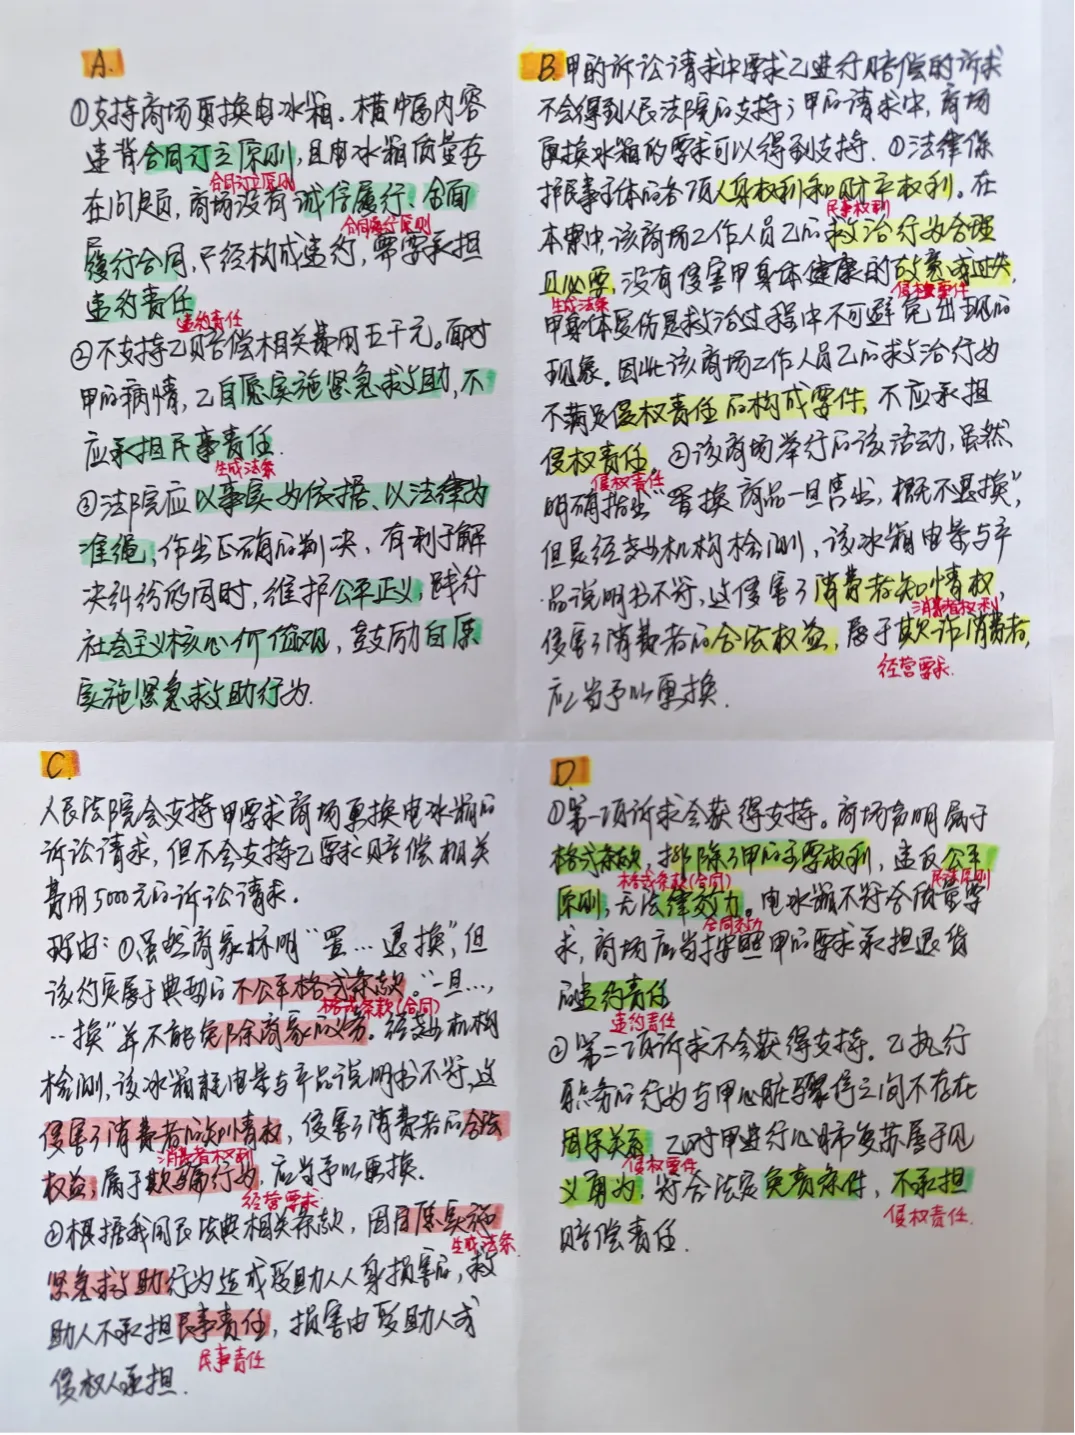 A.
①支持商场更换电冰箱。横幅内容
违背合同订立原则,且电冰箱质量存
合同订立原则
在问题,商场没有诚信履行、全面
合同履行原则
履行合同,已经构成违约,需要承担
违约责任
违约责任
②不支持乙赔偿相关费用五千元。面对
甲的病情,乙自愿实施紧急救助,不
应承担民事责任.
生成法条
③法院应以事实为依据、以法律为
准绳,作出正确的判决,有利于解
决纠纷的同时,维护公平正义,践行
社会主义核心价值观,鼓励自愿
实施紧急救助行为.
B.甲的诉讼请求中要求乙进行赔偿的诉求
不会得到人民法院的支持;甲的请求中,商场
更换冰箱的要求可以得到支持.①法律保
护民事主体的各项人身权利和财产权利。在
民事权利
本案中,该商场工作人员乙的救治行为合理
且必要,没有侵害甲身体健康的故意或过失,
生成法条
侵权要件
甲身体受伤是救治过程中不可避免出现的
现象。因此该商场工作人员乙的救治行为
不满足侵权责任的构成要件,不应承担
侵权责任。②该商场举行的该活动,虽然
侵权责任
明确指出“置换商品一旦售出,概不退换”,
但是经专业机构检测,该冰箱电量与产
品说明书不符,这侵害了消费者知情权,
消费者权利
侵害了消费者的合法权益,属于欺诈消费者,
经营要求.
应当予以更换.
C.
人民法院会支持甲要求商场更换电冰箱的
诉讼请求,但不会支持乙要求赔偿相关
费用5000元的诉讼请求.
理由:①虽然商家标明“置…退换”,但
该约定属于典型的不公平格式条款。“一旦…,
格式条款(合同)
…换”并不能免除商家的义务。经专业机构
检测,该冰箱耗电量与产品说明书不符,这
侵害了消费者的知情权,侵害了消费者的合法
消费者权利
权益,属于欺骗行为,应当予以更换.
经营要求.
②根据我国民法典相关条款,因自愿实施
生成法条
紧急救助行为造成受助人人身损害的,救
助人不承担民事责任,损害由受助人或
民事责任
侵权人承担.
D.
①第一项诉求会获得支持。商场声明属于
格式条款,排除了甲的主要权利,违反公平
格式条款(合同)
民法原则
原则,无法律效力。电冰箱不符合质量要
合同效力
求,商场应当按照甲的要求承担退货
的违约责任
违约责任
②第二项诉求不会获得支持.乙执行
职务的行为与甲心脏骤停之间不存在
因果关系,乙对甲进行心肺复苏属于见
侵权要件
义勇为,符合法定免责条件,不承担
侵权责任.
赔偿责任.